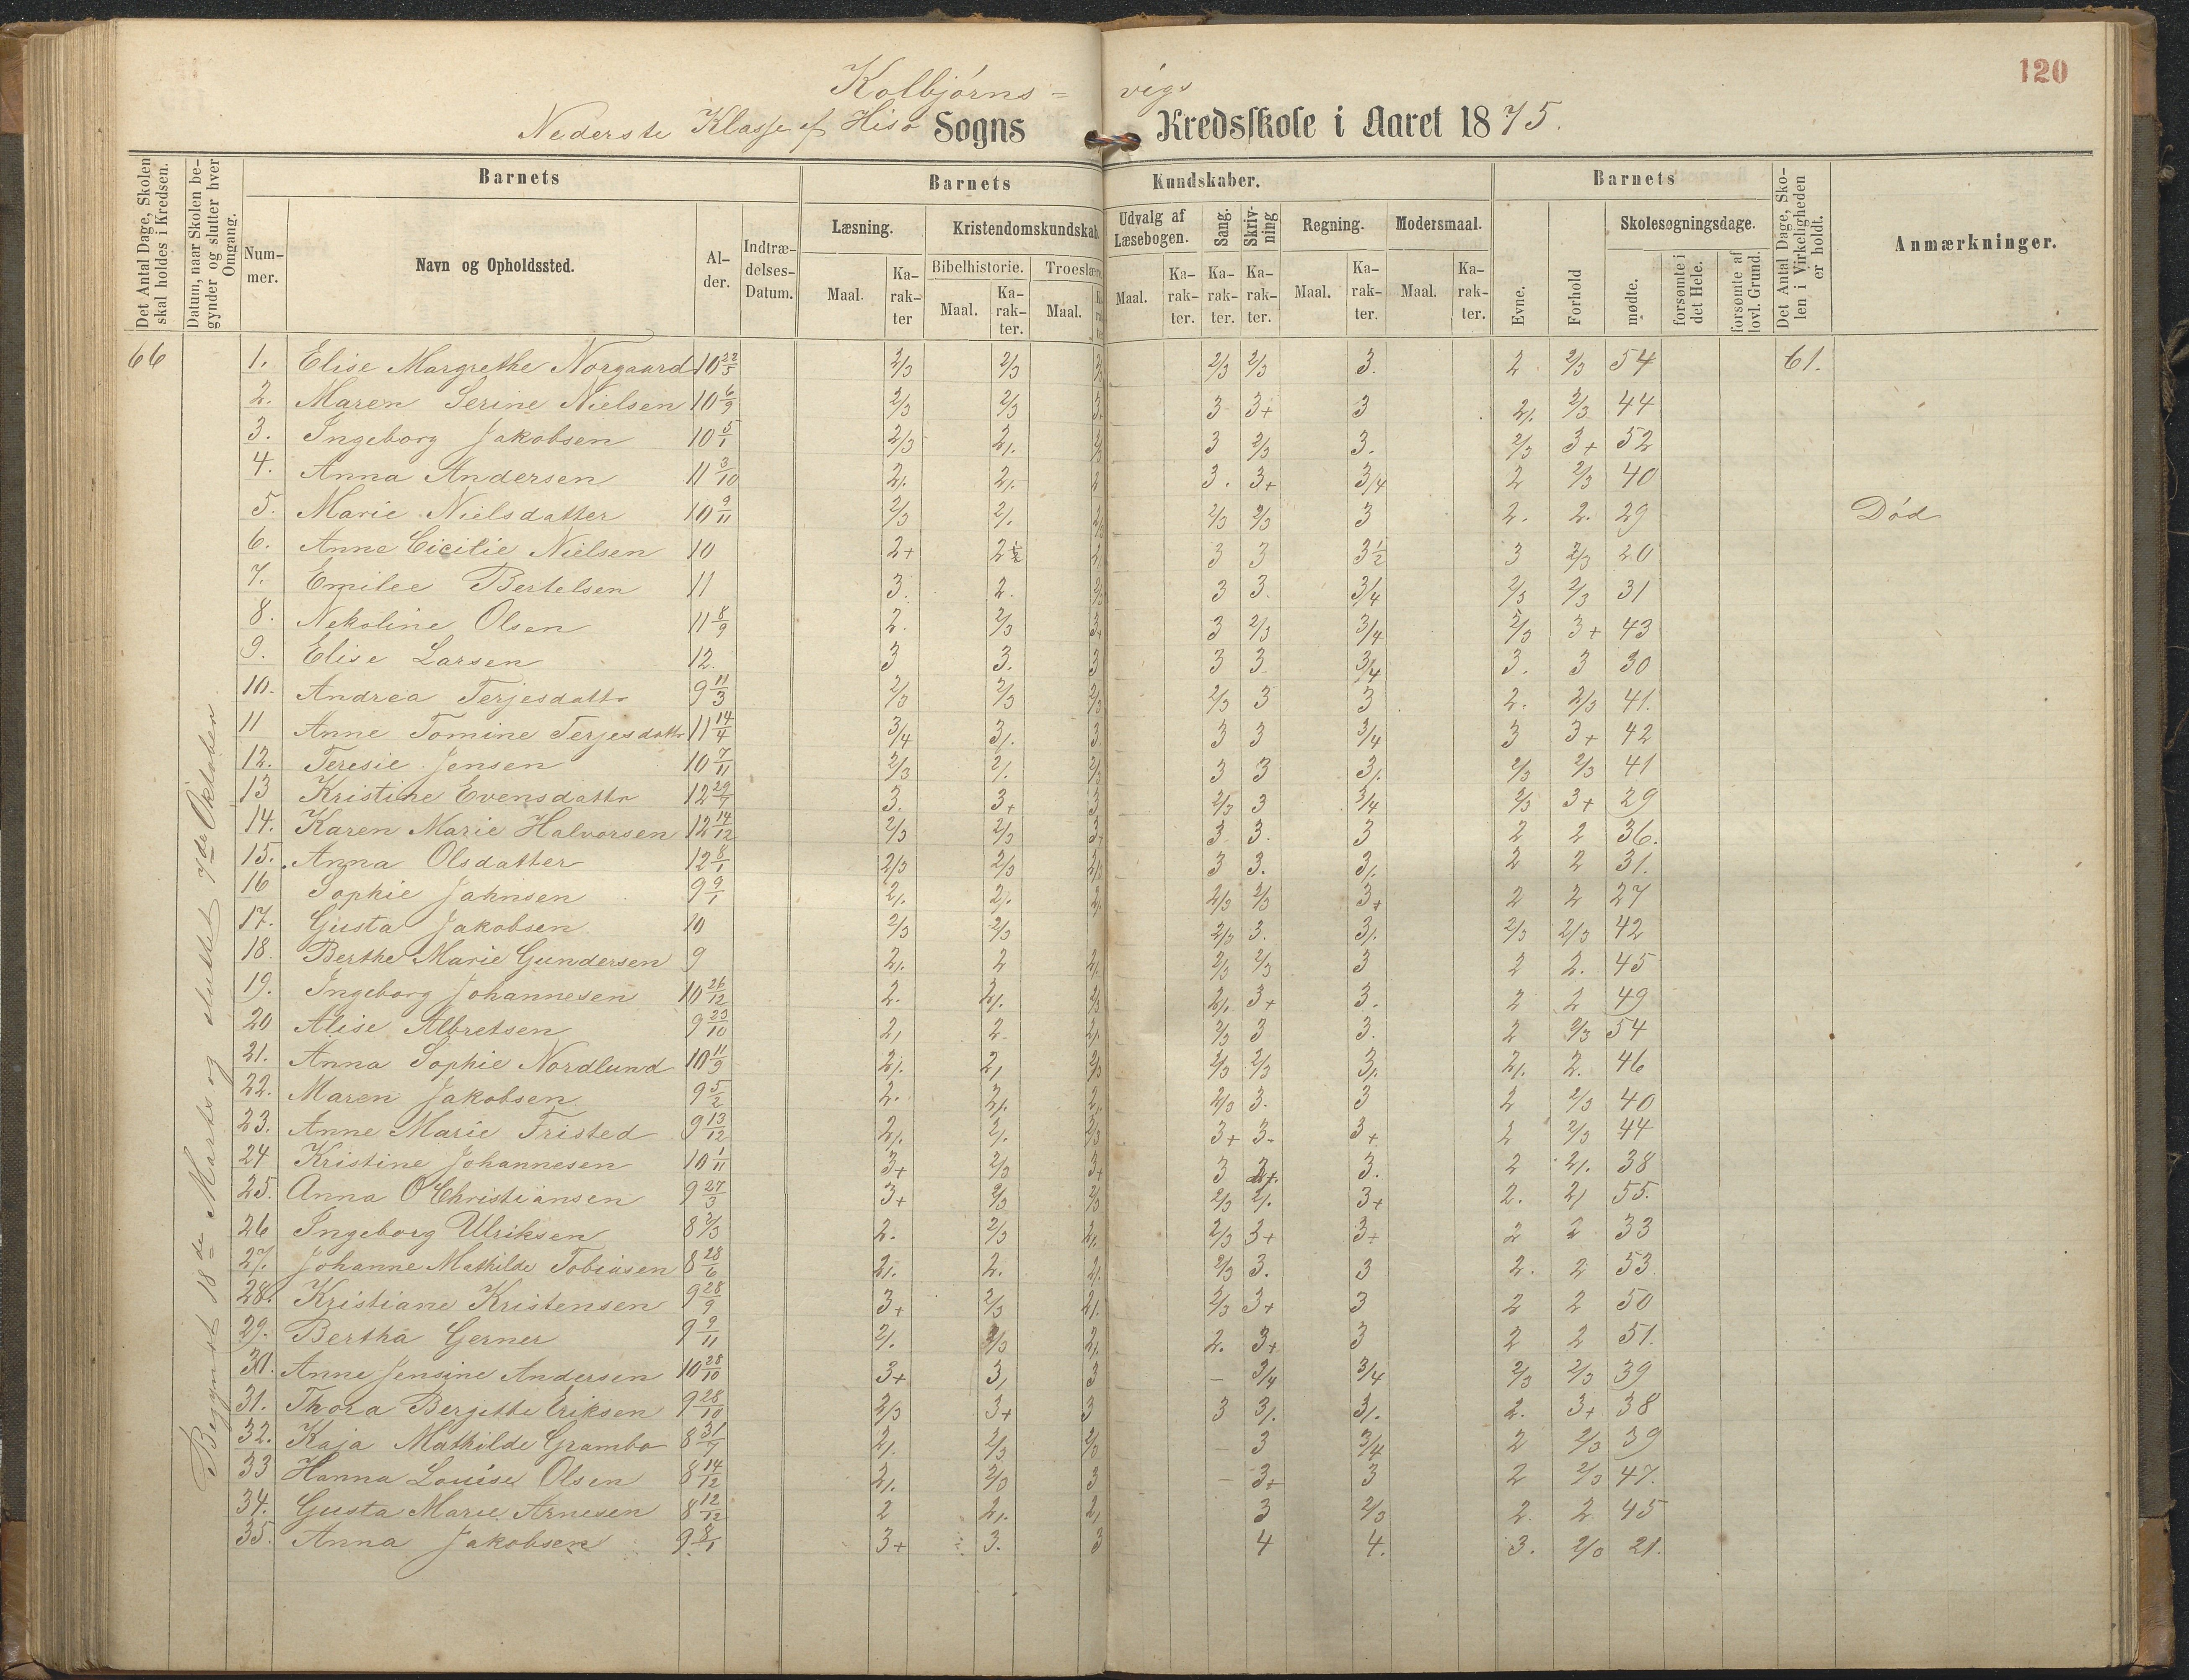 120
Kolbjørns= vigs
Nederste Klasse af Hisø Sogns Kredsskole i Aaret 1875.
Det Antal Dage, Skolen skal holdes i Kredsen.
Datum, naar Skolen begynder og slutter hver Omgang.
Barnets
Nummer.
Navn og Opholdssted.
Alder.
Indtrædelses-Datum.
Barnets Kundskaber.
Læsning.
Maal. Karakter
Kristendomskundskab.
Bibelhistorie.
Maal. Karakter.
Troeslære.
Maal.
Udvalg af Læsebogen.
Maal. Karakter.
Sang.
Karakter.
Skrivning
Karakter.
Regning.
Maal. Karakter.
Modersmaal.
Maal. Karakter.
Barnets
Evne.
Forhold
Skolesøgningsdage.
mødte.
forsømte i det Hele.
forsømte af lovl. Grund.
Det Antal Dage, Skolen i Virkeligheden er holdt.
Anmærkninger.
Begyndt 18de Marts og sluttet 7de Oktober
66 1. Elise Margrethe Norgaard 10 22/5 2/3 2/3 2/3 2/3 2/3 3. 2 2/3 54 61.
2. Maren Serine Nielsen 10 6/9 2/3 2/3 3+ 3 3+ 3 2/. 2/3 44
3. Ingeborg Jakobsen 10 5/1 2/3 2/. 2/3 3 2/3 3. 2/3 3+ 52
4. Anna Andersen 11 3/10 2/. 2/. 2 3. 3+ 3/4 2 2/3 40
5. Marie Nielsdatter 10 9/11 2/3 2/. 2/3 2/3 2/3 3 2. 2. 29 Død
6. Anne Cicilie Nielsen 10 2+ 2 1/2 2/. 3 3 3 1/2 3 2/3 20
7. Emilee Bertelsen 11 3. 2. 2/3 3 3. 3/4 2/3 2/3 31
8. Nekoline Olsen 11 8/9 2. 2/3 3+ 3 2/3 3/4 2/3 3+ 43
9. Elise Larsen 12. 3 3. 3 3 3 3/4 3. 3 30
10. Andrea Terjesdattr 9 11/3 2/3 2/3 2/3 2/3 3 3 2. 2/3 41.
11 Anne Tomine Terjesdattr 11 14/4 3/4 3/. 3 3 3 3/4 3 3+ 42
12. Teresie Jensen 10 7/11 2/3 2/. 2/3 3 3 3/. 2/3 2/3 41
13 Kristine Evensdattr 12 29/7 3. 3+ 3 2/3 3 3/4 2/3 3+ 29
14. Karen Marie Halvorsen 12 14/12 2/3 2/3 3+ 3 3. 3 2 2 36.
15. Anna Olsdatter 12 8/1 2/3 2/3 2/3 3 3. 3/. 2 2 31.
16 Sophie Jahnsen 9 9/1 2/. 2/. 2/. 2/3 2/3 3+ 2 2 27
17. Gusta Jakobsen 10 2/3 2/3 2/3 3. 3/. 2/3 2/3 42
18. Berthe Marie Gundersen 9 2/. 2 2/. 2/3 2/3 3 2 2. 45
19. Ingeborg Johannesen 10 26/12 2. 2/. 2/3 2/. 3+ 3. 2 2 49
20 Alise Albretsen 9 23/10 2/ 2. 2/. 2/3 3 3. 2 2/3 54
21. Anna Sophie Nordlund 10 11/9 2/. 2/ 2/3 2/3 2/3 3/. 2/. 2. 46
22. Maren Jakobsen 9 5/2 2. 2/. 2/. 2/3 3. 3 2 2/3 40
23. Anne Marie Fristed 9 13/12 2/. 2/. 2/3 3+ 3- 3+ 2 2/3 44
24 Kristine Johannesen 10 1/11 3+ 2/3 3+ 3 2+. 3. 2 2/. 38
25. Anna O Christiansen 9 27/3 3+ 2/3 2/3 2/3 2/. 3+ 2. 2/ 55.
26 Ingeborg Ulriksen 8 2/3 2. 2/3 2/. 2/3 3+ 3+ 2 2 33
27. Johanne Mathilde Tobiasen 8 28/6 2/. 2. 2/. 2/3 3. 3 2. 2 53
28. Kristiane Kristensen 9 28/9 3+ 2/3 2/. 2/3 3+ 3 2 2 50
29. Bertha Gerner 9 9/11 2/. 2/3 2/. 2. 3+ 3 2 2 51.
30. Anne Jensine Andersen 10 28/10 3+ 3/ 3 - 3/4 3/4 2/3 2/3 39
31. Thora Bergitte Eriksen 9 28/10 2/3 3+ 3 3 3/. 3/. 2. 3+ 38
32. Kaja Mathilde Grambo 8 31/7 2/. 2/3 2/3 - 3 3/4 2 2/3 39
33 Hanna Louise Olsen 8 14/12 2/. 2/3 3 - 3+ 3 2 2/3 47.
34. Gusta Marie Arnesen 8 12/12 2 2/. 2/ 3 2/3 2. 2 45
35. Anna Jakobsen 9 8/1 3+ 3. 3 4 4. 3. 2/3 21.